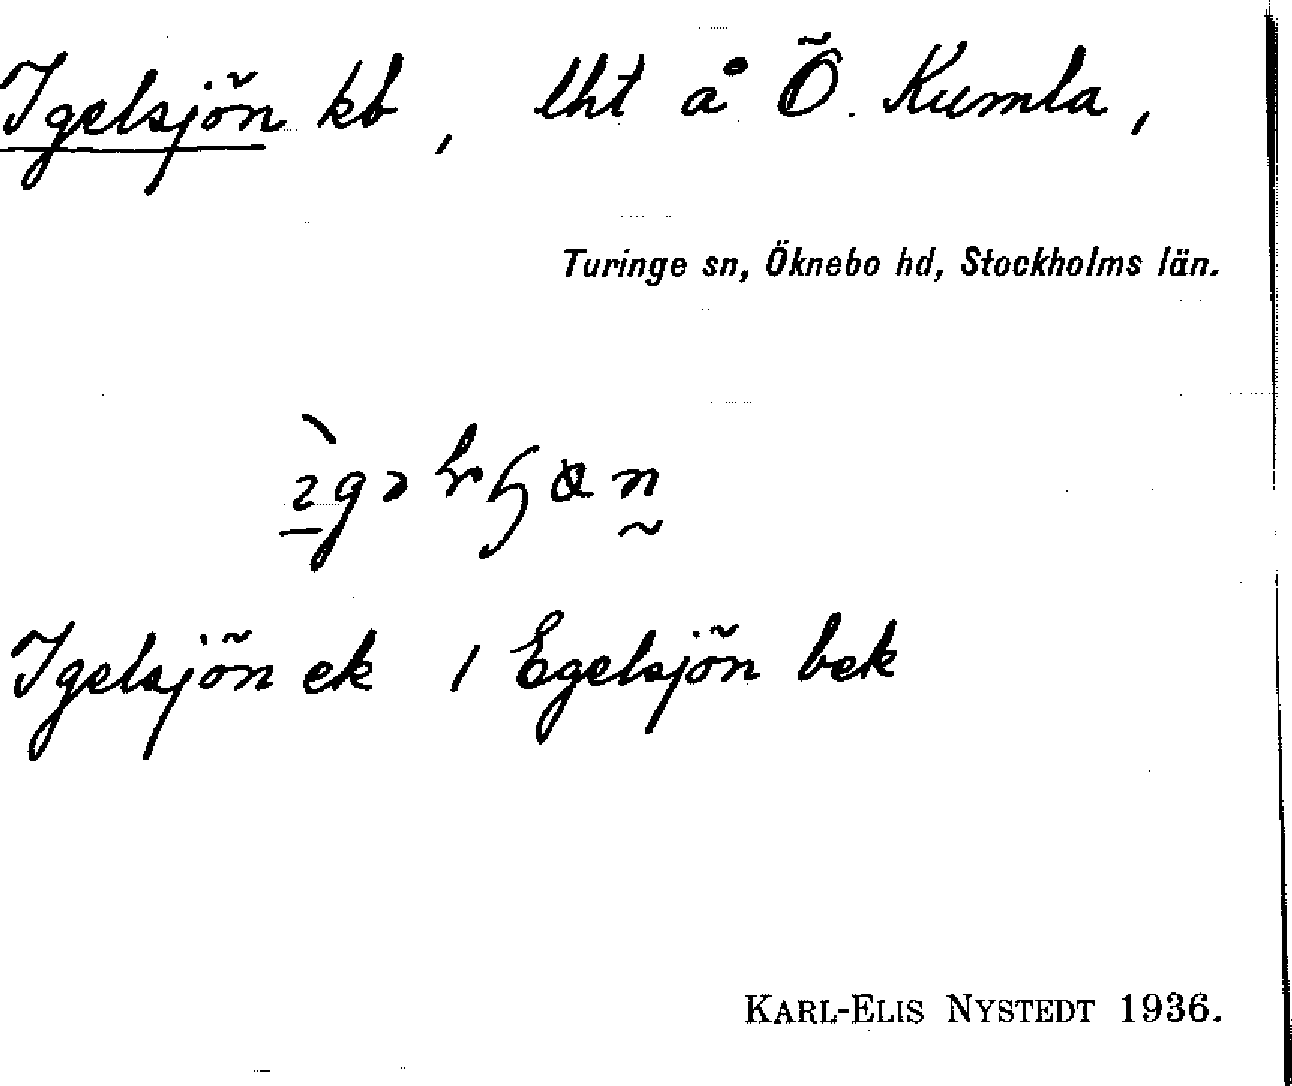 Igelsjön kb, lht å Ö. Kumla,
Turinge sn, Öknebo hd, Stockholms län.
Igelsjön ek / Egelsjön bek
KARL-ELIS NYSTEDT 1936.